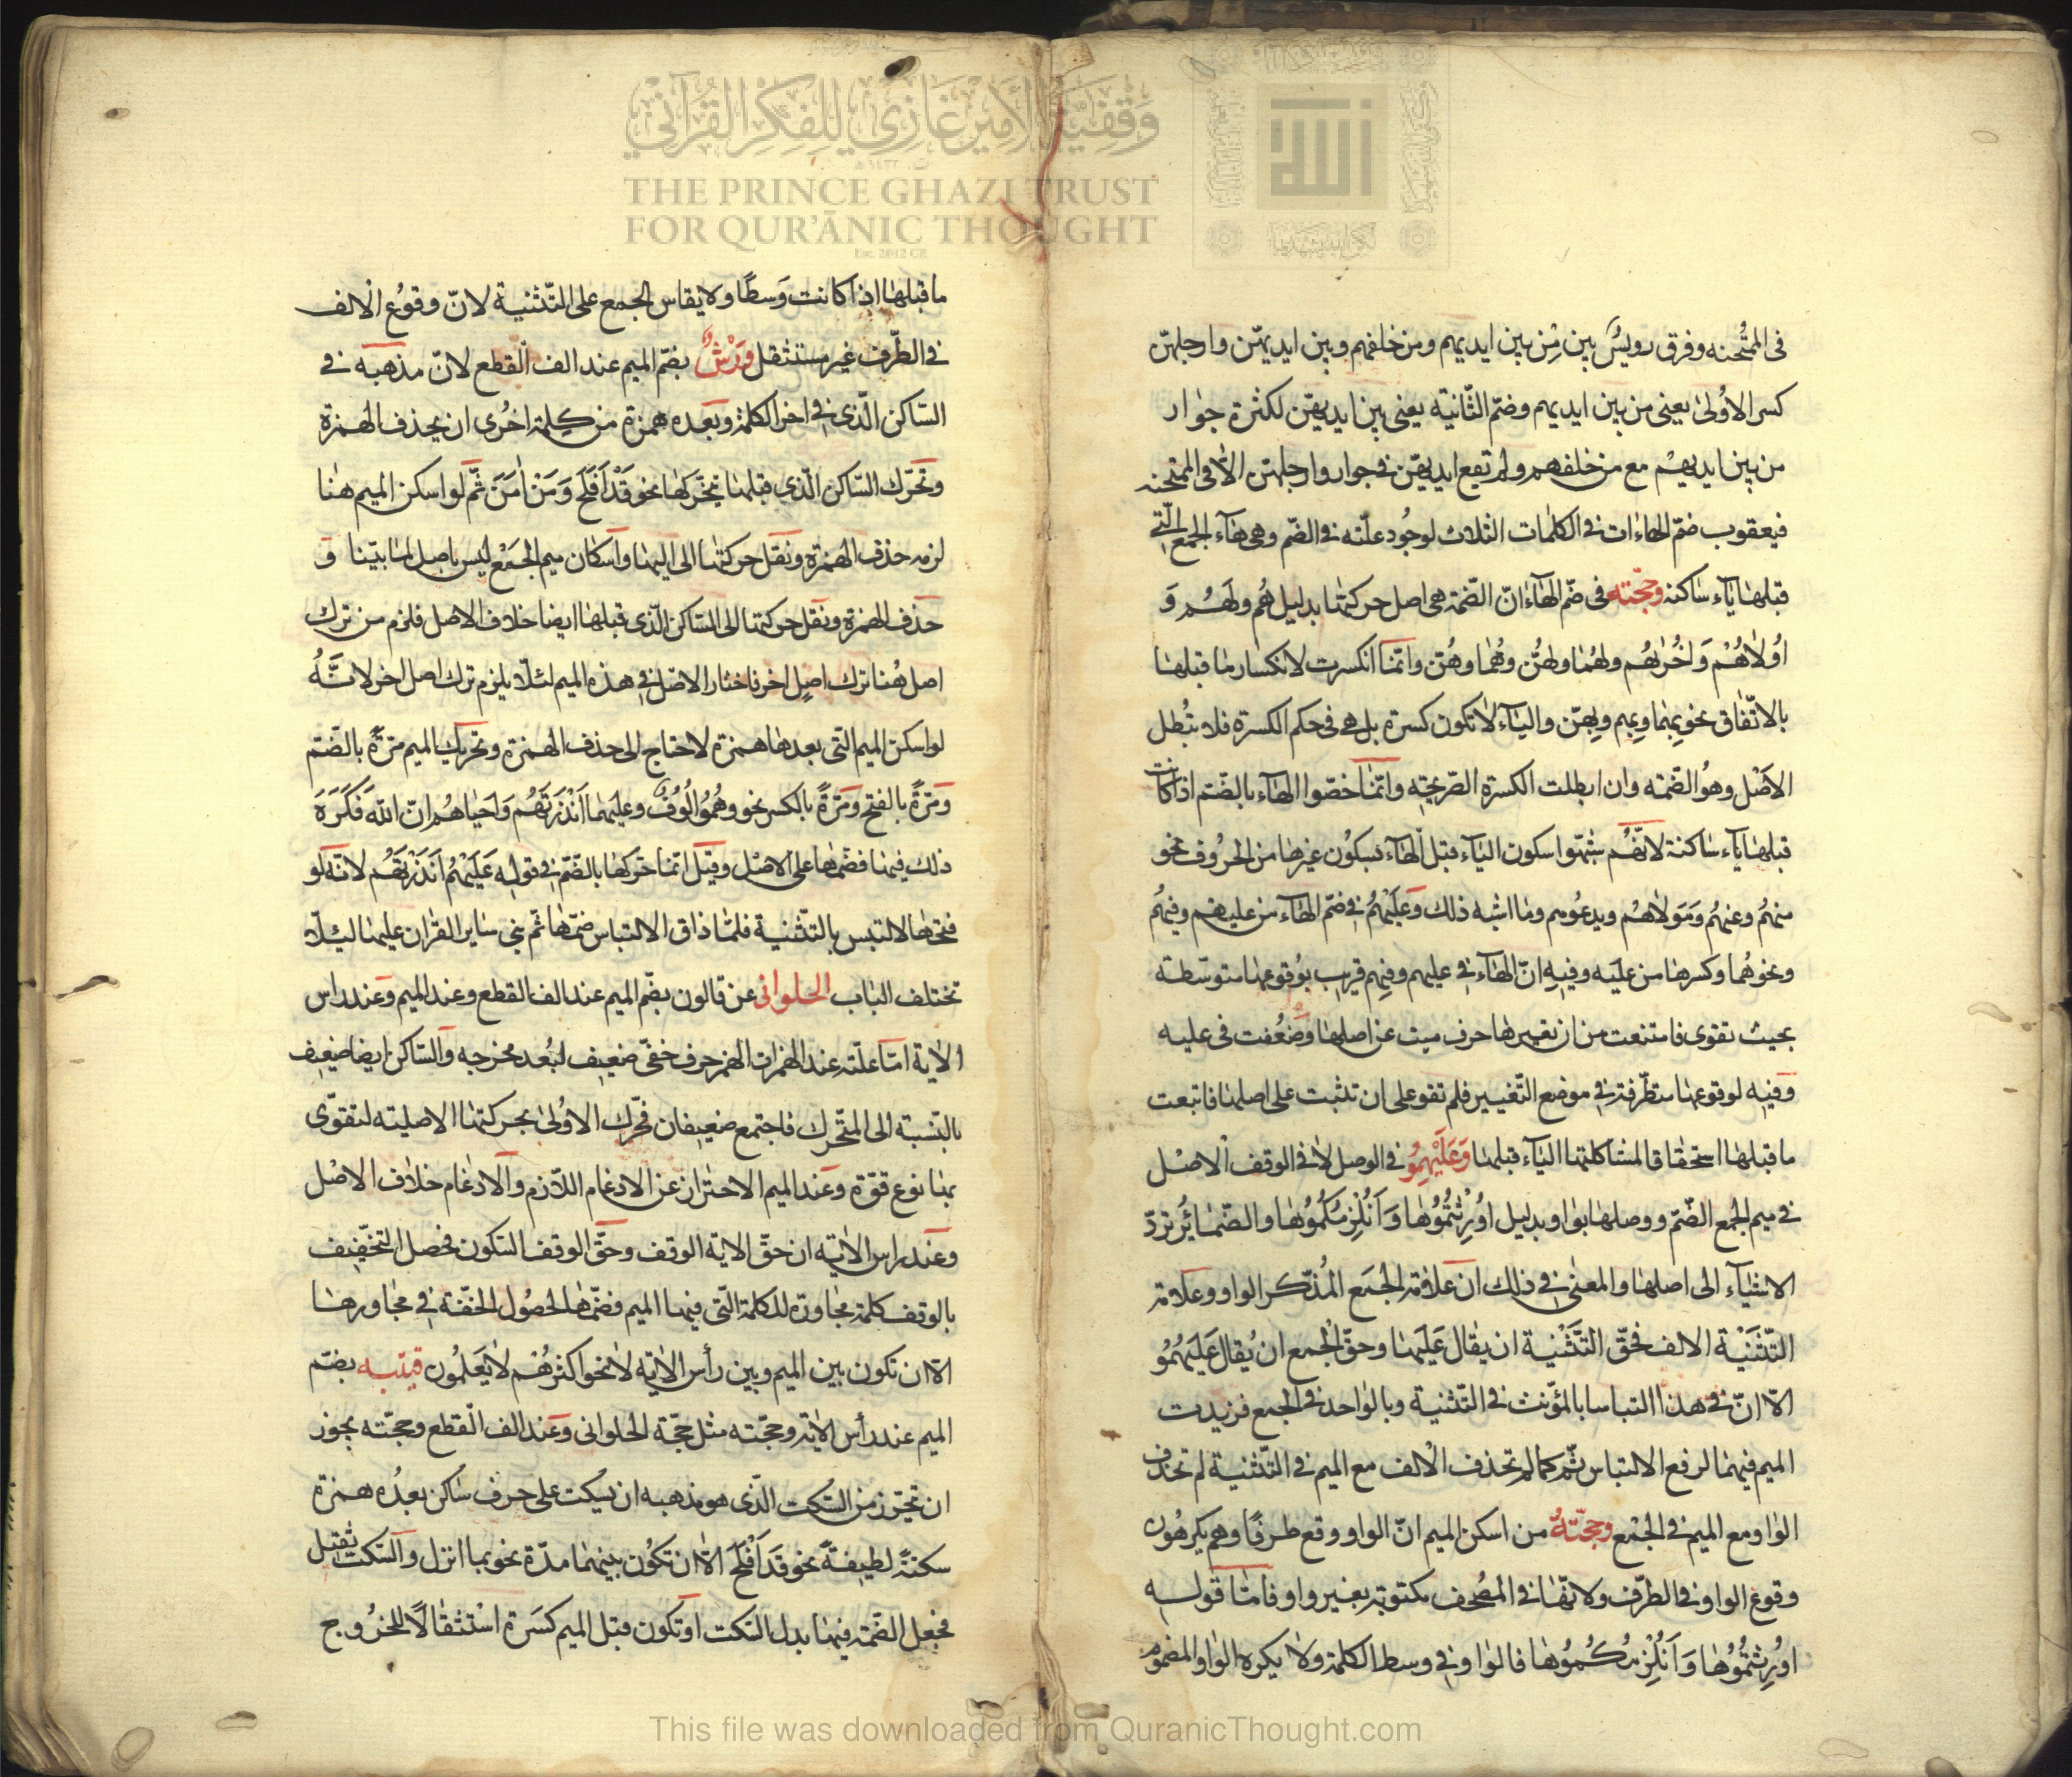 وقفية الأمير غازي للفكر القرآني
THE PRINCE GHAZI TRUST
FOR QUR'ĀNIC THOUGHT
Est. 2012 CE
فى الممتحنه وفرق رويس بين مِن بين ايديهم ومن خلفهم وبين ايديهّن وارجلهّن
كسر الاُولىٰ يعنى من بين ايديهم وضم الثّانيه يعنى بين ايديهّن لكثرة جوار
من بين ايديهم مع من خلفهم ولم تقع ايديهّن فى جوار وارجلهّن الا فى الممتحنه
فيعقوب ضمّ الهاءات فى الكلمات الثلاث لوجُود علّته فى الضّم وهى هآء الجمع الّتى
قبلها يآء ساكنه وحجّته فى ضّم الهآء انّ الضّمة هى اصل حركتها بدليل هُم ولَهُم وَ
اُولاٰهُمْ وَاخُرٰهُم ولهُما ولهُنّ وهُما وهُنّ وانّما انكسرت لانكسار ما قبلها
بالاتّفاق نحو بِهِما وبِهِم وبِهِّن واليآء لا تكون كسرة بل هى فى حكم الكسرة فلا تُبطل
الاَصْل وهُو الضّمه وان ابطلت الكسرة الصّريحه وانّما خصّوا الهآء بالضّم اذا كانت
قبلها يآء ساكنة لانّهُم شبّهوا سكون اليآء قبل الهآء بسكون غيرها من الحروف نحو
منهُم وعنهُم وَمَولاٰهُم ويدعُوهم وما اشبه ذلك وَعَلَيْهُم فى ضّم الهآء من عليهم وفيهُم
ونحوهُما وكسرها من علَيه وفيهِ انّ الهآء فى عليهم وفيهم قريب بوُقوعها متوسّطة
بحيث تقوى فامتنعت من ان تغييرها حرف ميت عن اصلها وضعُفت فى عليه
وفيه لوقوعها متطّرفة فى موضع التّغيير فلم تقو على ان تثبت على اصلها فاتبعت
ما قبلها استحقاقا لمشاكلتها اليآء قبلها وَعَلَيْهِمُو فى الوصل لا فى الوقف الاصْل
فى ميم الجمع الضّم ووصلها بواو بدليل اوُرِثْتُمُوُها وَ اَنُلْزِمُكُمُوُها والضّمائر تردّ
الاشيآء الى اصلها والمعنٰى فى ذلك ان علاٰمة الجَمَع المُذّكر الواو وعلامة
التّثَنْيَة الالف فحَقّ التَّثْنْية ان يقال عَلَيهَا وحقّ الجمع ان يُقال عَلَيهُمُو
الاّ انّ فى هذا التباسا بالمؤنث فى التّثنية وبالواحد فى الجمع فزيدت
الميم فيهما لرفع الالتباس ثمّ كما لم تحذف الالف مع الميم فى التّثنية لم تحذف
الواو مع الميم فى الجمْع وحجّتهُ من اسكن الميم انّ الواو وقع طرفًا وهم يكرهُون
وقوع الواو فى الطرّف ولانّها فى المصُحف مكتوبة بغير واو فامّا قوله
اوُرِثتُمُوُها وَ اَنُلْزِمُكُموُها فالواو فى وسط الكلمة ولا يكره الواو المضموم
ما قبلها اذا كانت وَسطًا ولا يقاس الجمع على التّثنية لانّ وقوُع الالف
فى الطّرف غير مستثقل ورْشٌ بضمّ الميم عند الف القطع لانّ مذهبه فى
السّاكن الّذى فى اخر الكلمة وبَعْده همزة من كِلمة اخُرى ان يحذف الهمزة
وتحَرّك السّاكن الّذى قبلها بتحّركها نحو قَدَ اَفْلَحَ وَ مَنْ اٰمَنَ ثمّ لو اسكن الميم هنا
لزمه حذف الهمزة ونقل حركتها الى اليها واسكان ميم الجَمْع ليس باصل لما بيّنا وَ
حذف الهمزة ونقل حركتها الى السّاكن الّذى قبلها ايضا خلاف الاصل فلزم من ترك
اصل هُنا ترك اصِل اخر فاختار الاصل فى هذه الميم لئلاّ يلزم ترك اصل اخر لانّهُ
لو اسكن الميم التّى بعدها همزة لاحتاج الى حذف الهمزة وتحريك الميم مرّةً بالضّم
ومَرّةً بالفتح ومَرّةً بالكسر نحو وهُمُو اُلُوُفٌ وعليهما اَنْذَرتَهُم وَاحياهُم انّ اللهَ فَكَرَهَ
ذلك فيها فضّمها على الاصْل وقيَل انّما حّركها بالضّم فى قوله عَلَيهُمُ اَنَذَرْتَهُم لانّه لو
فتحها لالتبس بالتّثنية فلمّا ذاق الالتباس ضّمها ثم بنى ساير القران عليها ليئلاّ
تختلف الباب الحلوانى عن قالون بضّم الميم عند الف القطع وعند الميم وعند راس
الاٰية امّا علّته عند الهمزات الهمز حرف خفّى ضعيف لبُعد مخرجه والسّاكن ايضا ضعيف
بالنّسبة الى المتّحرك فاجتمع ضعيفان فحّرك الاوُلىٰ بحركتها الاصليته لتقوّى
بها نوع قوّة وعَند الميم الاحتراز عن الادغام اللاّزم والادغام خلاف الاصْل
وعَند راس الاٰيه ان حقّ الاية الوقف وحقّ الوقف السّكون فحصل التّخفيف
بالوقف كلمة مجاورة للكلمة التّى فيها الميم فضّمها لحصُول الخفّة فى مجاورها
الا ان تكون بين الميم وبين رأس الاٰيه لا نحو اكثرهُم لا يَعلمُون قتيبه بضّم
الميم عند رأس الاٰية وحجّته مثل حجّة الحلوانى وعَند الف القطع وحجّته يجوز
ان تحّرز من السّكت الذّى هو مذهبه ان يسكت على حرف ساكن بعدُه همزة
سكتةً لطيفةً نحو قَدَ اَفْلَحَ الا ان تكوُن بينهما مدّة نحو بما انزل والسّكت ثقيل
فجعل الضّمة فيها بدل السّكت اوتكون قبل الميم كسَرة استثقالًا للخرُوج
This file was downloaded from QuranicThought.com